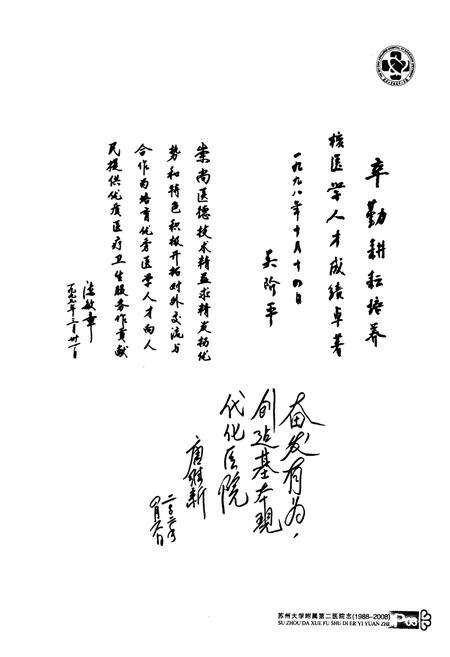 辛勤耕耘培养
核医学人才成绩卓著
一九九八年十月十四日
吴阶平
崇尚医德技术精益求精发扬优
势和特色积极开拓对外交流与
合作为培育优秀医学人才向人
民提供优质医疗卫生服务作贡献
陈敏章
一九九七年三月廿一日
奋发有为，
创造基本现
代化医院
唐
新
苏州大学附属第二医院志(1988-2008)
SU ZHOU DA XUE FU SHU DI ER YI YUAN ZHI
P 03